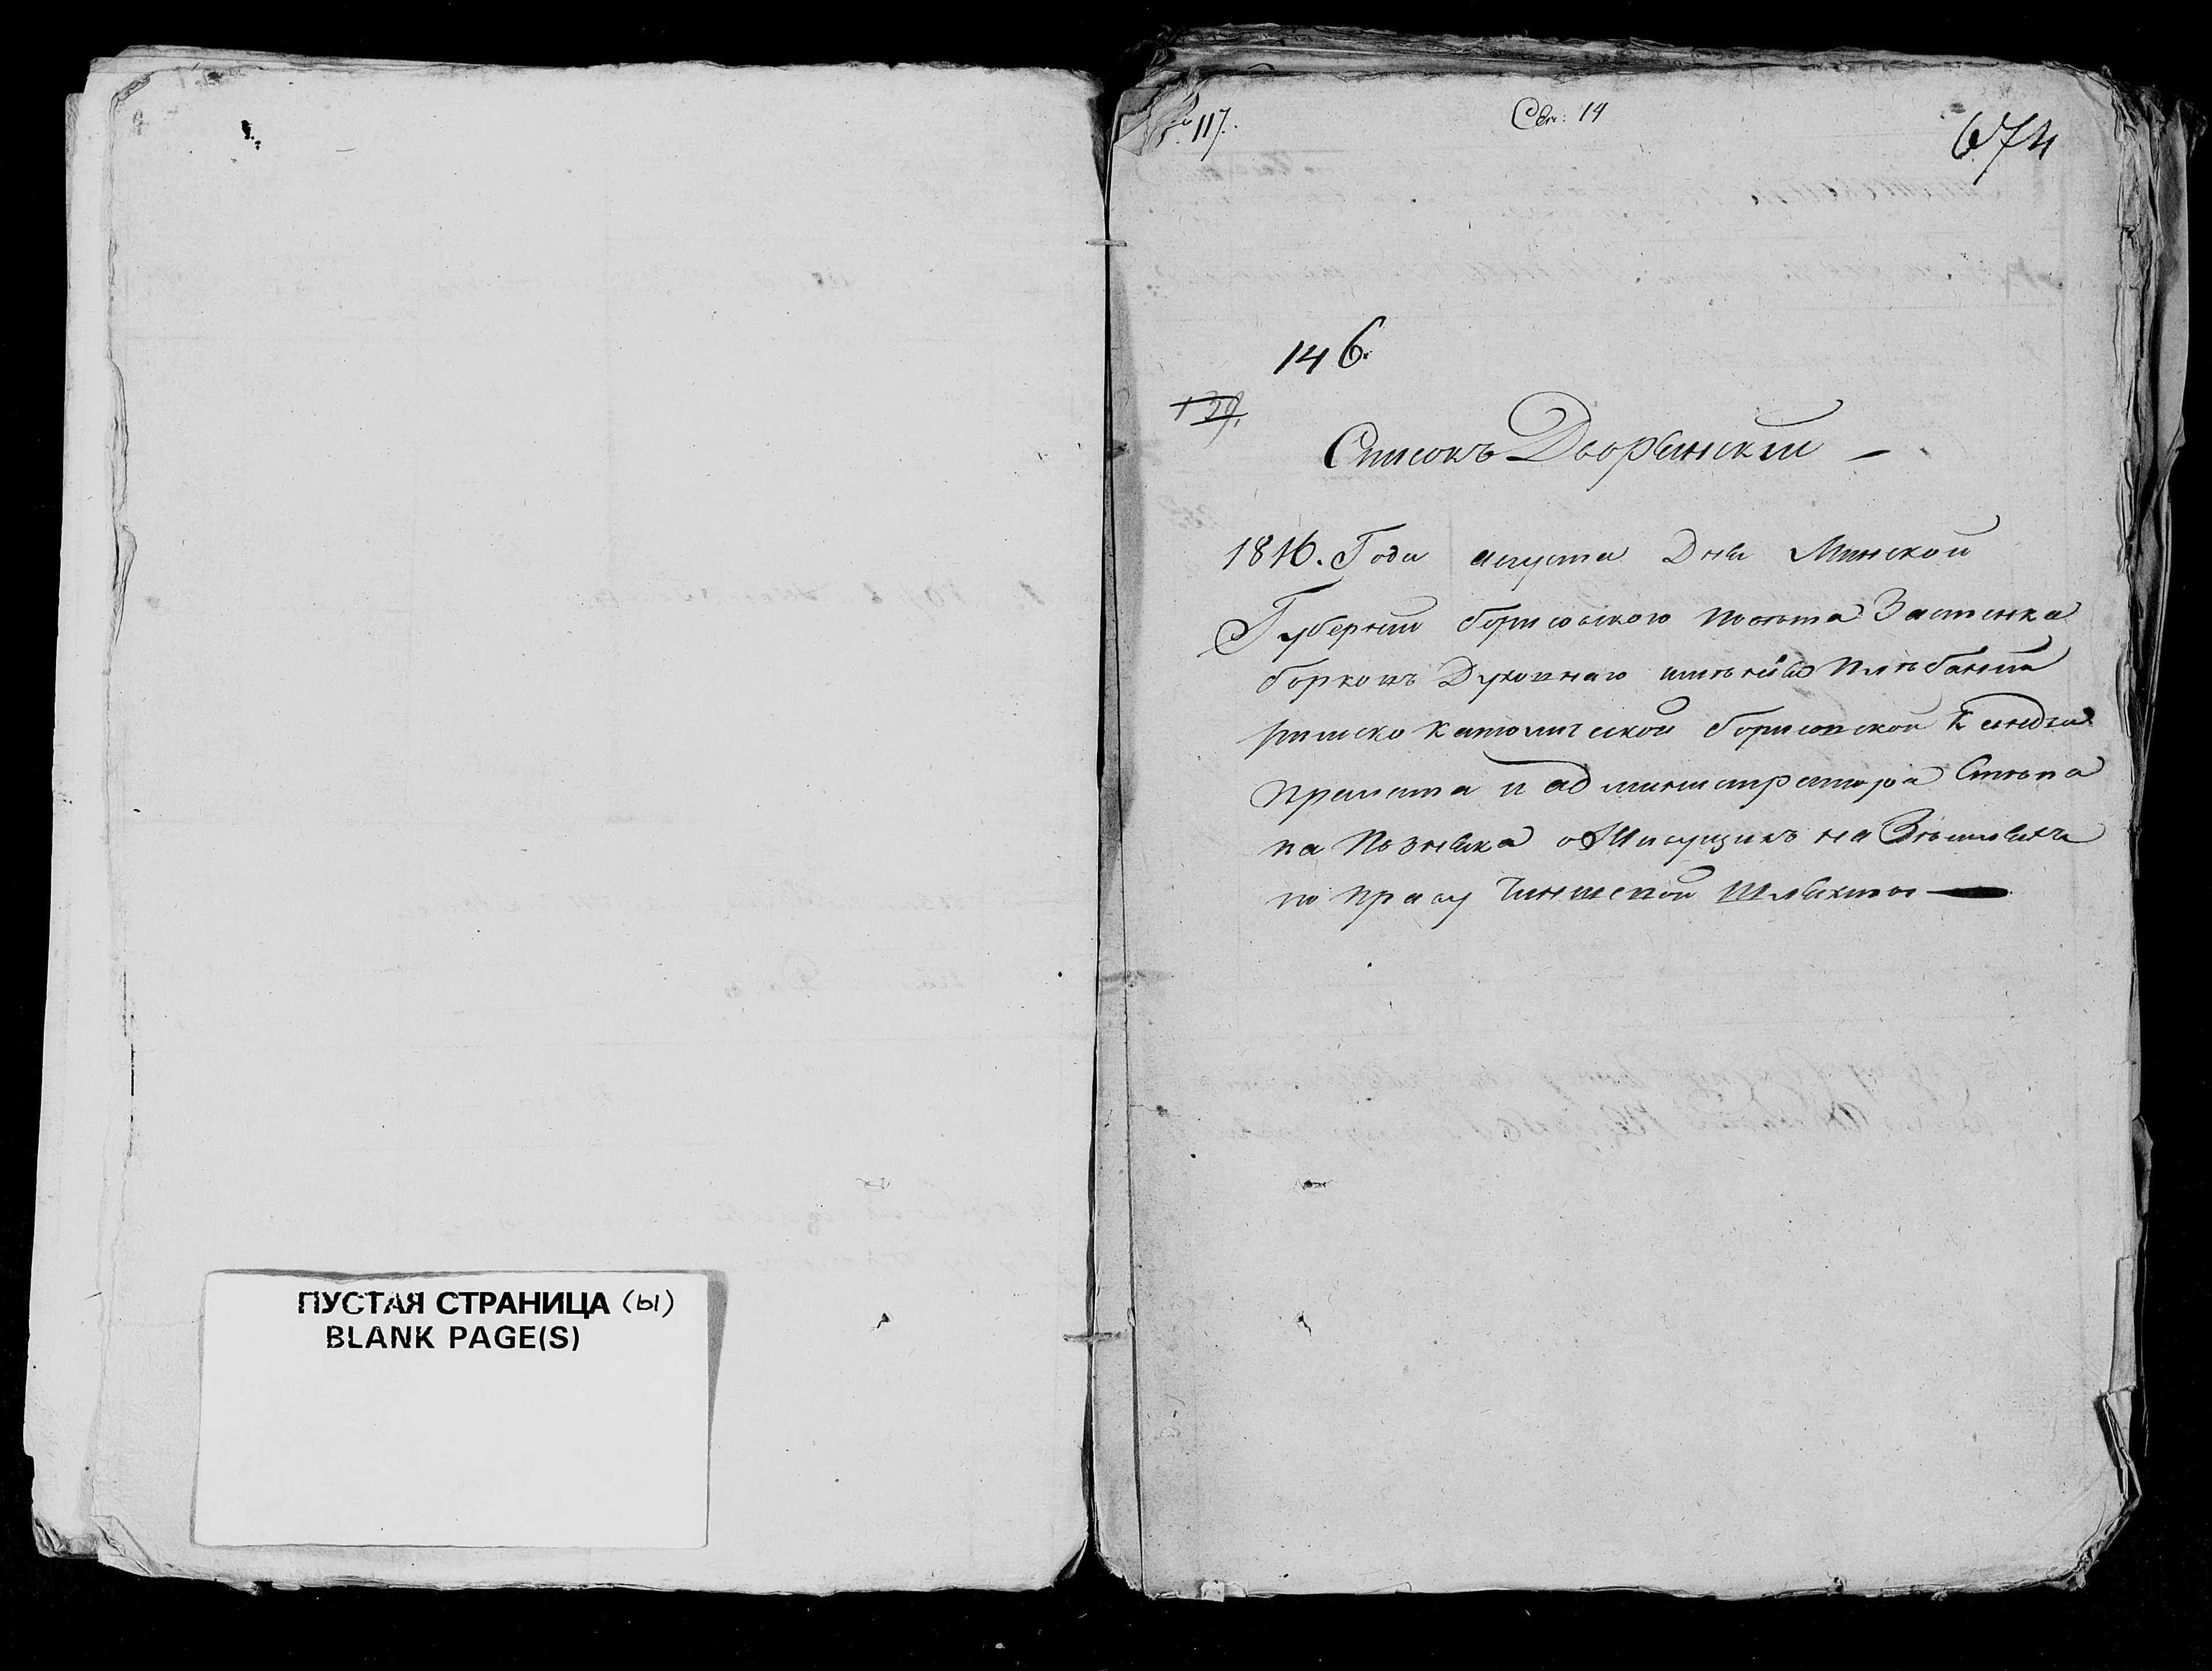 ПУСТАЯ СТРАНИЦА (ы)
BLANK PAGE(S)
№ 117.
Свя: 14
674
146.
139.
Списокъ Дворянскiи
1816. Года августа Дня Минской
Губернiи борисовского повѣта Застенка
борковъ Духовнаго имѣнiя Плѣбанiи
римско католической борисовской Ксендза
прелата и администратора Стѣпа
на Позняка о Живущихъ на Зѣмляхъ
по праву Чиншевой Шляхты